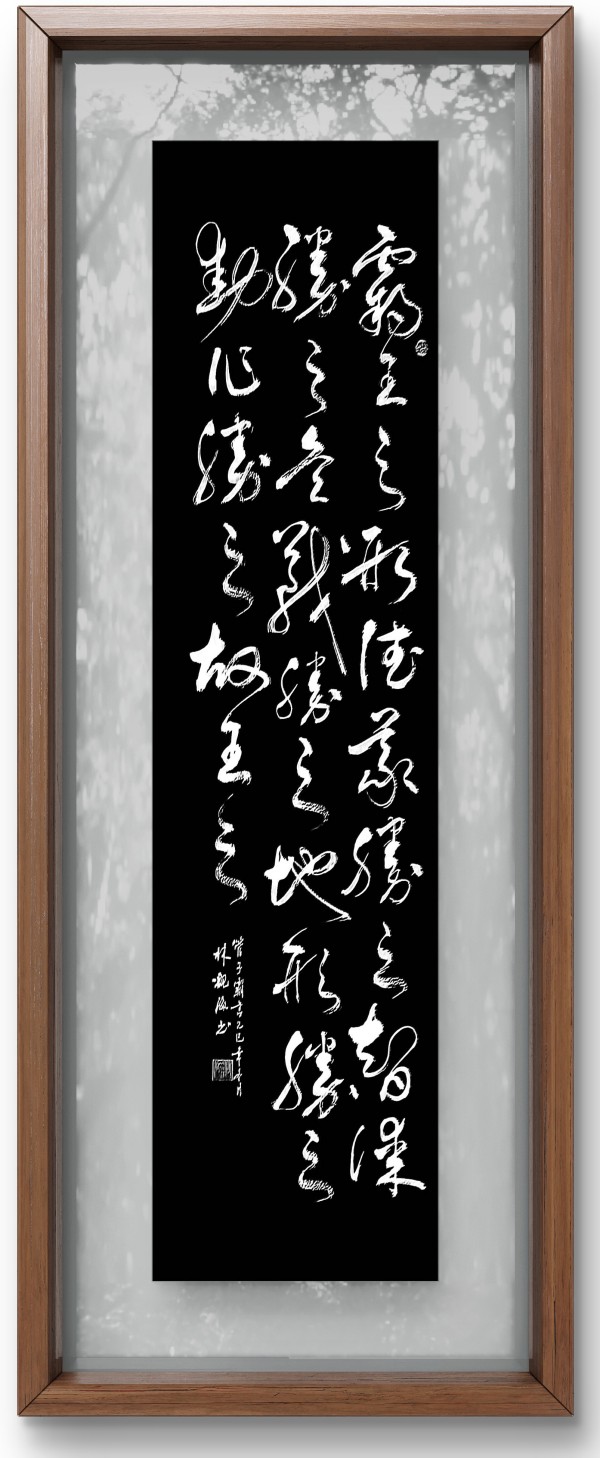 霸王之形德義勝之智謀
勝之兵戰勝之地形勝之
動作勝之故王之
管子霸言乙巳
林